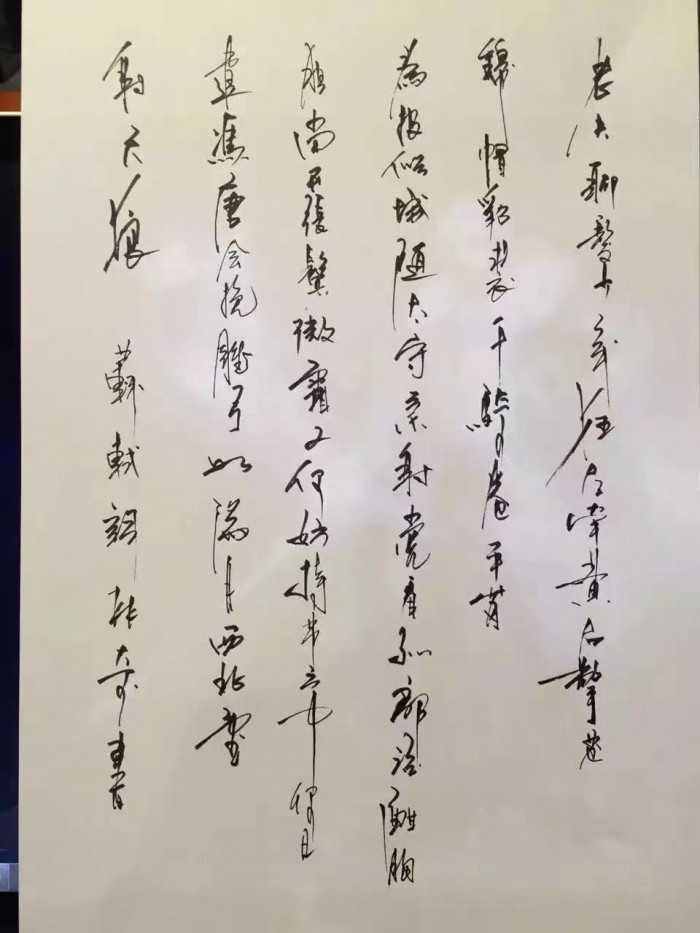 老夫聊發少年狂左牽黃右擎蒼
錦帽貂裘千騎卷平岡
為報傾城隨太守亲射虎看孫郎酒酣胸
胆尚开張鬢微霜又何妨持节云中何日
遣馮唐会挽雕弓如滿月西北望
射天狼 蘇軾詞 奇書